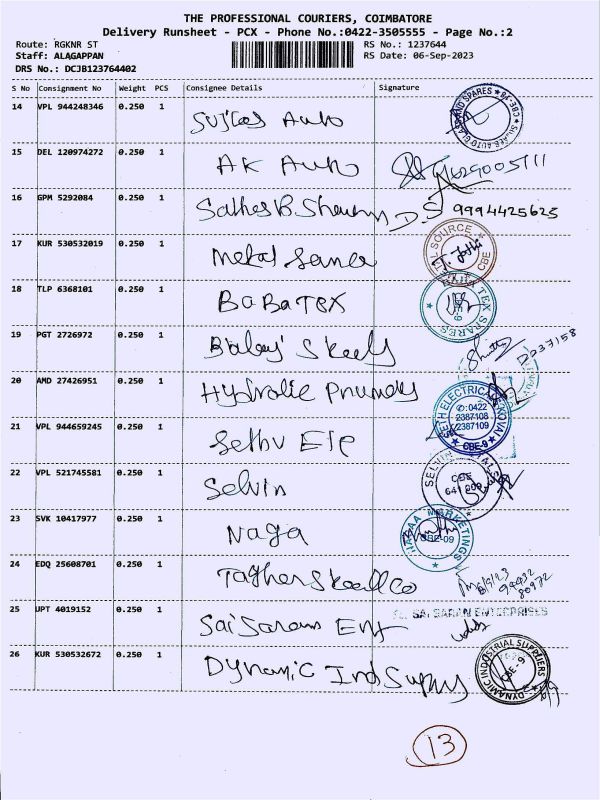 THE PROFESSIONAL COURIERS, COIMBATORE
Delivery Runsheet - PCX - Phone No.:0422-3505555 - Page No.:2
Route: RGKNR ST RS No.: 1237644
Staff: ALAGAPPAN RS Date: 06-Sep-2023
DRS No.: DCJB123764402
S No Consignment No Weight PCS Consignee Details Signature
14 VPL 944248346 0.250 1 Auto
15 DEL 120974272 0.250 1 AK Auto
16 GPM 5292084 0.250 1 D.S 9994425625
17 KUR 530532019 0.250 1 Metal SOURCE CBE
18 TLP 6368101 0.250 1 BaBaTex TEX SPARES
19 PGT 2726972 0.250 1
20 AMD 27426951 0.250 1
21 VPL 944659245 0.250 1 Sethu Ele SETH ELECTRICALS KOVAI
✆:0422
2387108
2387109
CBE-9
22 VPL 521745581 0.250 1 Selvin SELVIN CBE
23 SVK 10417977 0.250 1 Naga MARKETINGS CBE-09
24 EDQ 25608701 0.250 1
25 UPT 4019152 0.250 1 Sai Saran Ent SAI SARAN ENTERPRISES
26 KUR 530532672 0.250 1 Dynamic Ind DYNAMIC INDUSTRIAL SUPPLIERS CBE-9
13